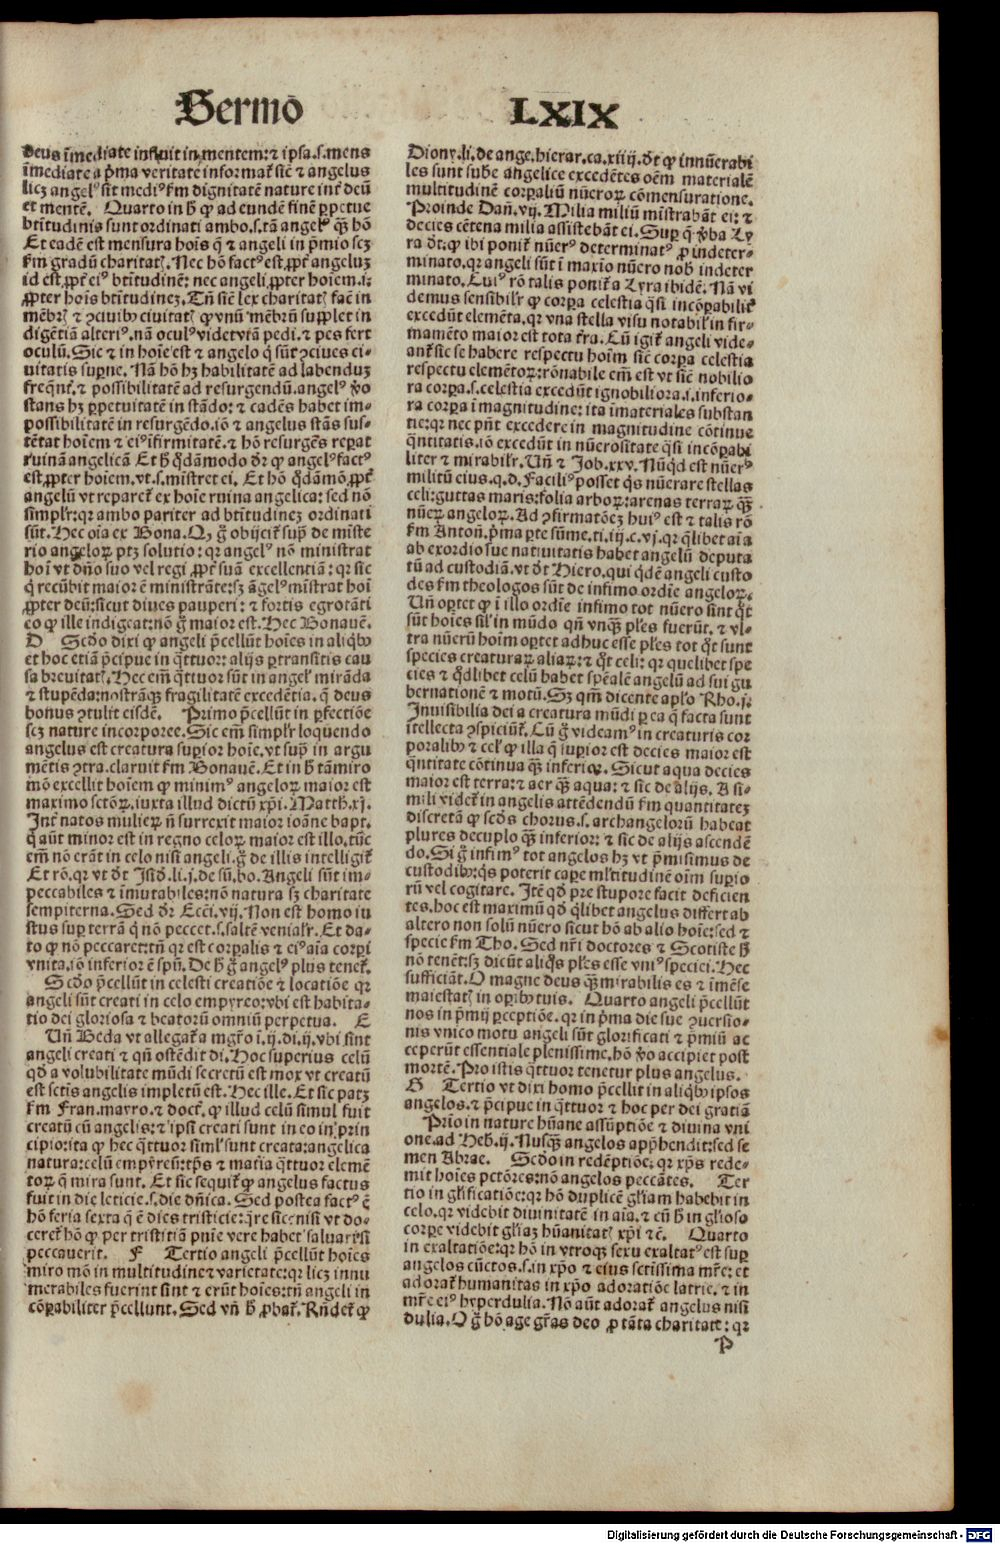 Sermo LXIX
deus īmediate influit in mentem: ⁊ ipsa .s. mens
īmediate a p̄ma veritate informať sic̄ ⁊ angelus
licꝫ angelꝰ sit mediꝰ ẜm dignitatē nature int̄ deū
et mentē. Quarto in h̄ ꝙ ad eundē finē ꝑpetue
btītudinis sunt ordinati ambo .s. tā angelꝰ q̄ꝫ hō
Et eadē est mensura hoīs q̄ ⁊ angeli in p̄mio scꝫ
ẜm gradū charitatꝭ. Nec hō factꝰ est ꝓpt̄ angeluꝫ
id est ꝓpt̄ eiꝰ btītudinē: nec angeli ꝓpter hoīem .i.
ꝓpter hoīs btītudineꝫ. Tn̄ sic̄ lex charitatꝭ fac̄ in
mēbrꝭ ⁊ ꝯciuibꝰ ciuitatꝭ ꝙ vnū mēbrū supplet in
digētiā alteriꝰ. nā oculꝰ videt viā pedi. ⁊ pes fert
oculū. Sic ⁊ in hoīe est ⁊ angelo q̇ sūt ꝯciues ci-
uitatis supne. Nā hō hꝫ habilitatē ad labenduꝫ
freq̄nt̄. ⁊ possibilitatē ad resurgendū. angelꝰ ꝟo
stans hꝫ ꝑpetuitatē in stādo: ⁊ cadēs habet im-
possibilitatē in resurgēdo. iō ⁊ angelus stās sus-
tētat hoīem ⁊ eiꝰ īfirmitatē. ⁊ hō resurgēs reparat
ruinā angelicā Et h̄ q̄dāmodo dr̄ ꝙ angelꝰ factꝰ
est ꝓpter hoīem. vt .s. mīstret ei. Et hō q̄dāmō ꝓpt̄
angelū vt reparet̄ ex hoīe ruina angelica: sed nō
simplr̄: qꝛ ambo pariter ad btītudineꝫ ordinati
sūt. Hec oīa ex Bona. Qꝫ g̊ obijcit̄ sup̄ de miste
rio angeloꝝ ptꝫ solutio: qꝛ angelꝰ nō ministrat
hoī vt dn̄o suo vel regi ꝓpt̄ suā excellentiā: qꝛ sic
q̇ recūbit maior ē ministrāte: sꝫ āgelꝰ mīstrat hoī
ꝓpter deū: sicut diues pauperi: ⁊ fortis egrotāti
eo ꝙ ille indigeat: nō g̊ maior est. Hec Bonauē.
D Scd̄o dixi ꝙ angeli p̄cellūt hoīes in aliq̇bꝰ
et hoc etiā p̄cipue in q̄ttuor: alijs ꝑtransitis cau
sa breuitatꝭ. Hec em̄ q̄ttuor sūt in angelꝭ mirāda
⁊ stupēda: nostrāqꝫ fragilitatē excedētia. q̄ deus
bonus ꝯtulit eisdē. Primo p̄cellūt in ꝑfectiōe
scꝫ nature incorporee. Sic em̄ simplr̄ loquendo
angelus est creatura supior hoīe. vt sup̄ in argu
mētis ꝯtra. claruit ẜm Bonauē. Et in h̄ tā miro
mō excellit hoīem ꝙ minimꝰ angeloꝝ maior est
maximo sctōꝝ. iuxta illud dictū xp̄i. Matth. xj.
Int̄ natos mulieꝝ n̄ surrexit maior ioāne bapt.
q̇ aūt minor est in regno celoꝝ maior est illo. tūc
em̄ nō erāt in celo nisi angeli. g̊ de illis intelligit̄
Et rō. qꝛ vt dt̄ Isid. li. j. de sū. bo. Angeli sūt im-
peccabiles ⁊ īmutabiles: nō natura sꝫ charitate
sempiterna. Sed dr̄ Ecci. vij. Non est homo iu
stus sup terrā q̇ nō peccet .s. saltē venialr̄. Et da-
to ꝙ nō peccaret: tn̄ qꝛ est corꝑalis ⁊ eiꝰ aīa corꝑi
vnita. iō inferior ē spū. De h̄ g̊ angelꝰ plus tenet̄.
Scd̄o p̄cellūt in celesti creatiōe ⁊ locatiōe qꝛ
angeli sūt creati in celo empyreo: vbi est habita-
tio dei gloriosa ⁊ beatorū omniū perpetua. E
Un̄ Beda vt allegať a mgr̄o ī .ij. di. ij. vbi sint
angeli creati ⁊ qn̄ ostēdit di. Hoc superius celū
qd̄ a volubilitate mūdi secretū est mox vt creatū
est sctīs angelis impletū est. Hec ille. Et sic patꝫ
ẜm Fran. mayro. ⁊ doct. ꝙ illud celū simul fuit
creatū cū angelis: ⁊ ipsi creati sunt in eo in prin
cipio: ita ꝙ hec q̄ttuor siml̄ sunt creata: angelica
natura: celū empyreū: tp̄s ⁊ mať̄ia q̄ttuor elemē
toꝝ q̄ mira sunt. Et sic sequit̄ ꝙ angelus factus
fuit in die leticie .s. die dn̄ica. Sed postea factꝰ ē
hō feria sexta q̄ ē dies tristicie: q̄re sic: nisi vt do-
ceret̄ hō ꝙ per tristitiā pnīe vere habet saluari si
peccauerit. F Tertio angeli p̄cellūt hoīes
miro mō in multitudine ⁊ varietate: qꝛ licꝫ innu
merabiles fuerint sint ⁊ erūt hoīes: tn̄ angeli in
cōꝑabiliter p̄cellunt. Sed vn̄ h̄ ꝓbať. Rn̄det̄ ꝙ
Diony. li. de ange. hierar. ca. xiiij. dt̄ ꝙ innūerabi
les sunt subē angelice excedētes oēm materialē
multitudinē corꝑaliū nūeroꝝ cōmensuratione.
Proinde Dan̄. vij. Milia miliū mīstrabāt ei: ⁊
decies cētena milia assistebāt ei. Sup q̄ ꝟba Ly
ra dt̄: ꝙ ibi ponit̄ nūerꝰ determinatꝰ ꝓ indeter-
minato. qꝛ angeli sūt ī maxīo nūero nob̄ indeter
minato. Cuiꝰ rō talis ponit̄ a Lyra ibidē. Nā vi
demus sensibilr̄ ꝙ corꝑa celestia q̄si incōꝑabilit̄
excedūt elemēta. qꝛ vna stella visu notabilꝭ in fir-
mamēto maior est tota t̄ra. Cū igit̄ angeli vide-
ant̄ sic se habere respectu hoīm sic̄ corꝑa celestia
respectu elemētoꝝ: rōnabile em̄ est vt sic̄ nobilio
ra corꝑa .s. celestia excedūt ignobiliora .s. inferio-
ra corꝑa ī magnitudine: ita īmateriales substan
tie: qꝛ nec pn̄t excedere in magnitudine cōtinue
q̄ntitatis. iō excedūt in nūerositate q̄si incōꝑabi
liter ⁊ mirabilr̄. Un̄ ⁊ Job. xxv. Nūq̇d est nūerꝰ
militū eius. q. d. Faciliꝰ posset q̇s nūerare stellas
celi: guttas maris: folia arboꝝ: arenas terraꝝ q̄ꝫ
nūeꝝ angeloꝝ. Ad ꝯfirmatōeꝫ huiꝰ est ⁊ talis rō
ẜm Anton̄. p̄ma ꝑte sūme. ti. iij. c. vj. qꝛ q̇libet aīa
ab exordio sue natiuitatis habet angelū deputa
tū ad custodiā. vt dt̄ Hiero. qui q̇dē angeli custo
des ẜm theologos sūt de infimo ordīe angeloꝝ.
Un̄ oꝑtet ꝙ ī illo ordīe infimo tot nūero sint q̄t
sūt hoīes sil̄ in mūdo qn̄ vnq̄ꝫ pl̄es fuerūt. ⁊ vl-
tra nūerū hoīm oꝑtet adhuc esse pl̄es tot q̄t sunt
species creaturaꝝ aliaꝝ: ⁊ q̄t celi: qꝛ quelibet spe
cies ⁊ q̄dlibet celū habet sp̄ealē angelū ad sui gu
bernationē ⁊ motū. Sꝫ qm̄ dicente aplo Rho. j.
Inuisibilia dei a creatura mūdi ꝑ ea q̄ facta sunt
ītellecta ꝯspiciūt̄. Cū g̊ videamꝰ in creaturis cor
poralibꝰ ⁊ celꝭ ꝙ illa q̄ supior est decies maior est
q̄ntitate cōtinua q̄ꝫ inferioꝝ. Sicut aqua decies
maior est terra: ⁊ aer q̄ꝫ aqua: ⁊ sic de alijs. A si-
mili videt̄ in angelis attēdendū ẜm quantitateꝫ
discretā ꝙ scd̄s chorus .s. archangelorū habeat
plures decuplo q̄ꝫ inferior: ⁊ sic de alijs ascendē
do. Si g̊ infimꝰ tot angelos hꝫ vt p̄misimus de
custodibꝰ: q̇s poterit capere ml̄titudinē oīm supio
rū vel cogitare. Itē qd̄ pre stupore facit deficien
tes. hoc est maximū qd̄ q̇libet angelus differt ab
altero non solū nūero sicut hō ab alio hoīe: sed ⁊
specie ẜm Tho. Sed nr̄i doctores ⁊ Scotiste h̄
nō tenēt: sꝫ dicūt aliq̄s pl̄es esse vniꝰ speciei. Hec
sufficiāt. O magne deus q̄ꝫ mirabilis es ⁊ imēse
maiestatꝭ in oꝑibꝰ tuis. Quarto angeli p̄cellūt
nos in p̄mij ꝑceptiōe. qꝛ in p̄ma die sue ꝯuersio-
nis vnico motu angeli sūt glorificati ⁊ p̄miū ac
ceperūt essentiale plenissime. hō ꝟo accipiet post
mortē. Pro istis q̄ttuor tenetur plus angelus.
G Tertio vt dixi homo p̄cellit in aliq̇bꝰ ipsos
angelos. ⁊ p̄cipue in q̄ttuor ⁊ hoc per dei gratiā
Prīo in nature hūane assūptiōe ⁊ diuina vni
one. ad Heb̄. ij. Nusq̄ꝫ angelos app̄hendit: sed se
men Abrae. Scd̄o in redēptiōe: qꝛ xp̄s rede-
mit hoīes pctōres: nō angelos peccātes. Ter
tio in glīficatiōe: qꝛ hō duplicē glīam habebit in
celo. qꝛ videbit diuinitatē in aīa. ⁊ cū h̄ in glīoso
corꝑe videbit glīaꝫ hūanitatꝭ xp̄i ⁊c̄. Quarto
in exaltatiōe: qꝛ hō in vtroqꝫ sexu exaltatꝰ est sup
angelos cūctos .s. in xp̄o ⁊ eius sctissima mr̄e: et
adorať humanitas in xp̄o adoratiōe latrie. ⁊ in
mr̄e eiꝰ hyperdulia. Nō aūt adorať angelus nisi
dulia. O g̊ hō age gr̄as deo ꝓ tāta charitate: qꝛ
P
Digitalisierung gefördert durch die Deutsche Forschungsgemeinschaft - DFG